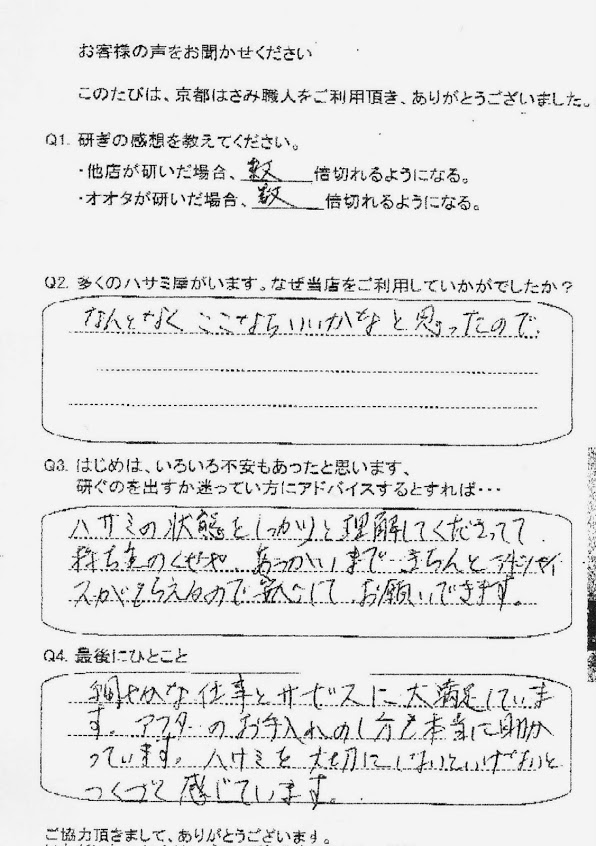 お客様の声をお聞かせください
このたびは、京都はさみ職人をご利用頂き、ありがとうございました。
Q1. 研ぎの感想を教えてください。
・他店が研いだ場合、数倍切れるようになる。
・オオタが研いだ場合、数倍切れるようになる。
Q2. 多くのハサミ屋がいます。なぜ当店をご利用していかがでしたか?
なんとなく ここならいいかなと思ったので
Q3. はじめは、いろいろ不安もあったと思います、
研ぐのを出すか迷ってい方にアドバイスするとすれば・・・
ハサミの状態をしっかりと理解してくださってて
持ち主のくせや あつかいまで きちんと アドバイ
スがもらえるので安心して お願いできます。
Q4. 最後にひとこと
細やかな仕事とサービスに大満足していま
す。アフターのお手入れのし方も本当に助か
っています。ハサミを大切にしないといけないと
つくづく感じています。
ご協力頂きまして、ありがとうございます。